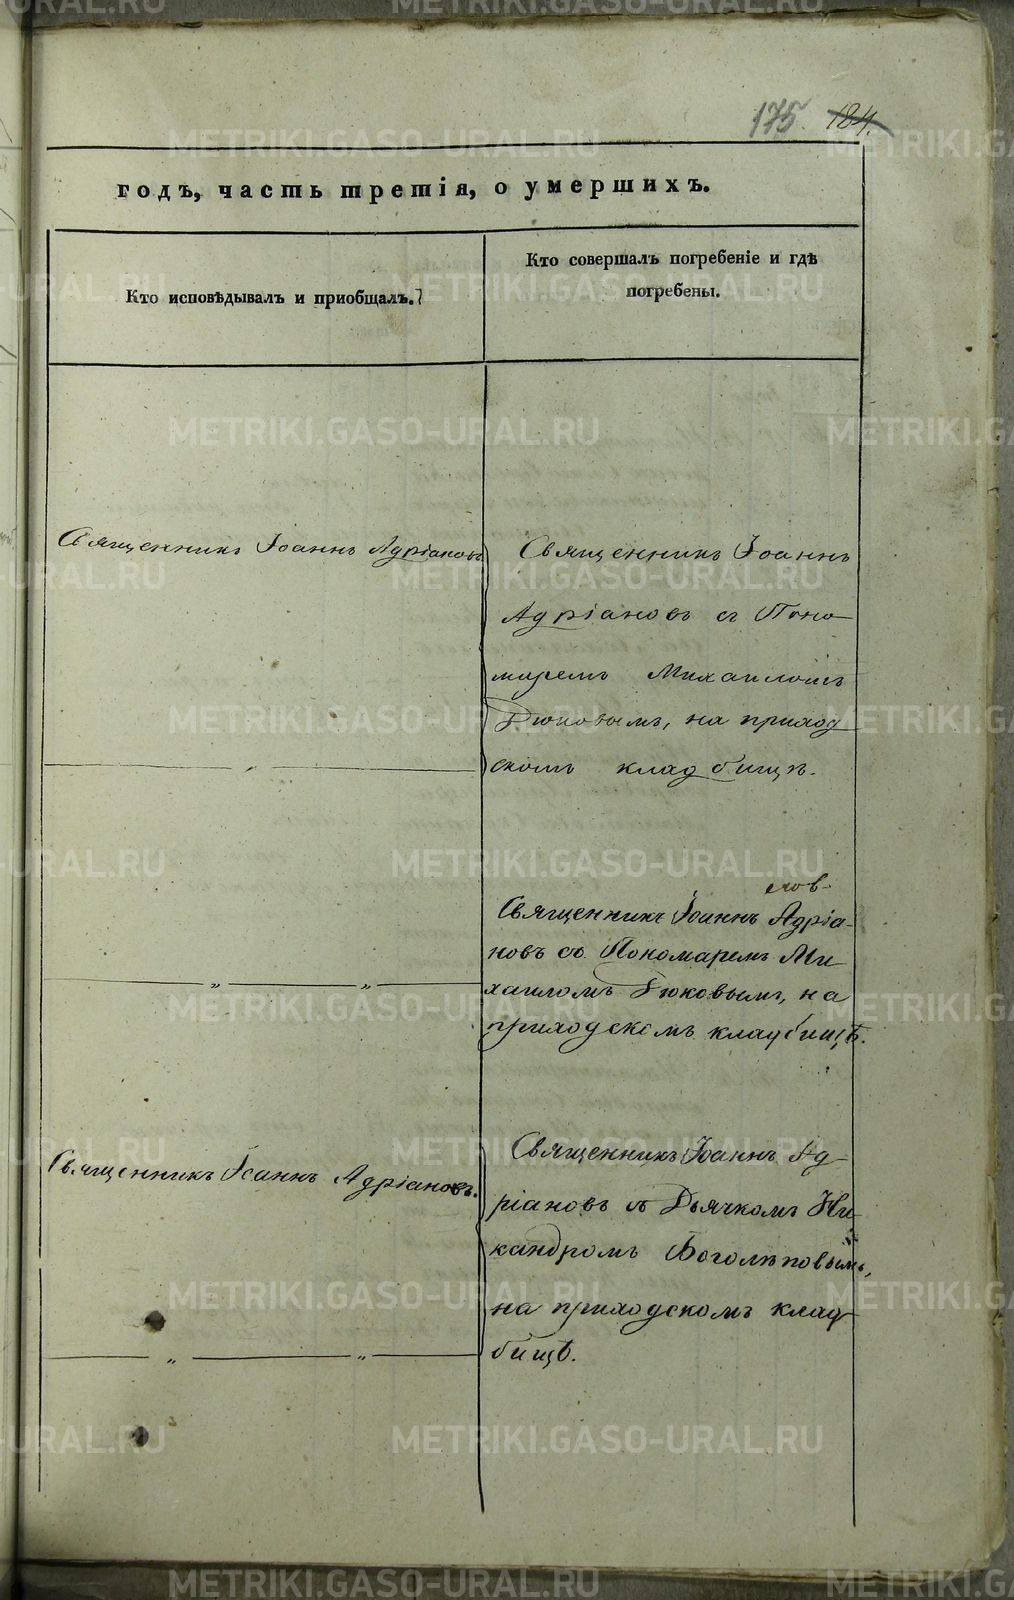 175. 184.
годъ, часть третія, о умершихъ.
Кто исповѣдывалъ и приобщалъ.
Кто совершалъ погребеніе и гдѣ
погребены.
Священникъ Іоаннъ Адріановъ
Священникъ Іоаннъ
Адріановъ съ Поно
маремъ Михаиломъ
на приход
скомъ кладбищѣ.
Священникъ Іоаннъ Адріа-
новъ съ Пономаремъ Ми
хаиломъ на
приходскомъ кладбищѣ.
Священникъ Іоаннъ Адріановъ.
Священникъ Іоаннъ Ад-
ріановъ съ Дьячкомъ Ни
кандромъ Боголѣповымъ,
на приходскомъ клад
бищѣ.
METRIKI.GASO-URAL.RU